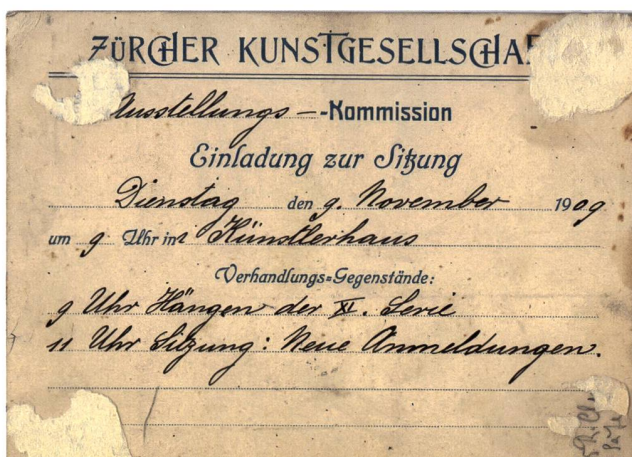 ZÜRCHER KUNSTGESELLSCHAF
Ausstellungs- -Kommission
Einladung zur Sitzung
Dienstag den 9. November 1909
um 9 Uhr im Künstlerhaus
Verhandlungs=Gegenstände:
9 Uhr Hängen der XI. Serie
11 Uhr Sitzung: Neue Anmeldungen.